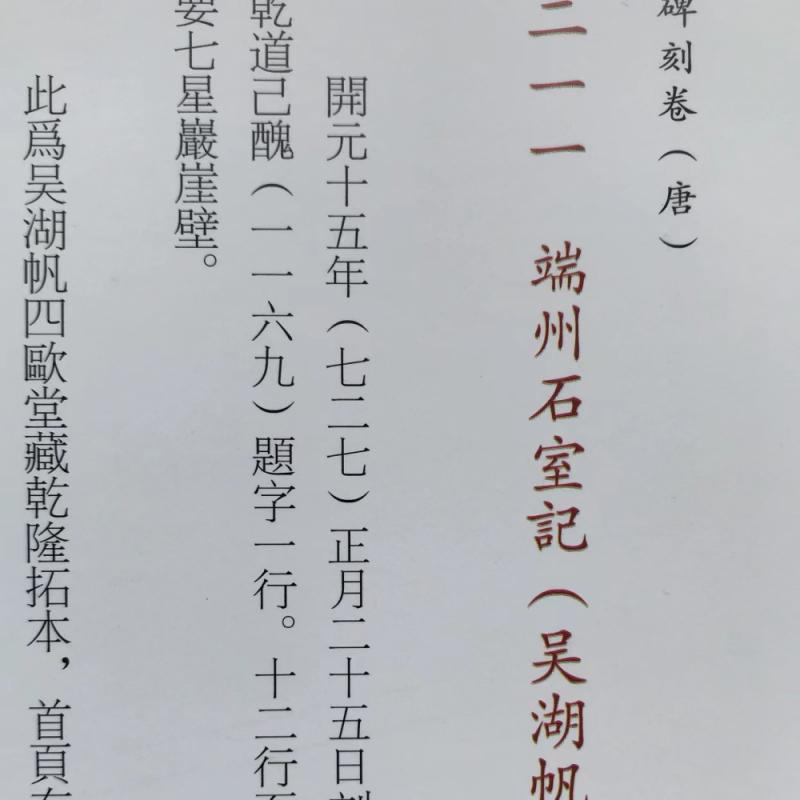 碑刻卷（唐）
二一一 端州石室記（吴湖帆
開元十五年（七二七）正月二十五日刻
乾道己醜（一一六九）題字一行。十二行石
要七星巖崖壁。
此爲吴湖帆四歐堂藏乾隆拓本，首頁有